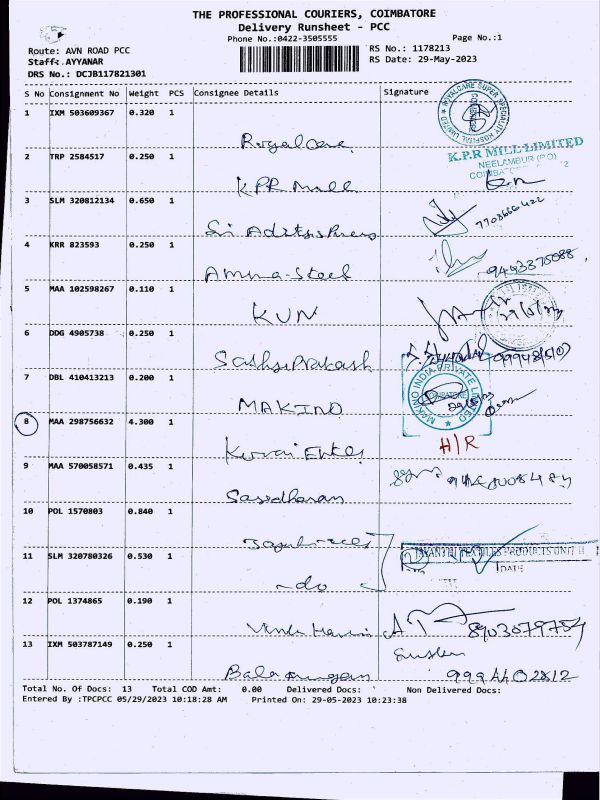 THE PROFESSIONAL COURIERS, COIMBATORE
Delivery Runsheet - PCC
Phone No.:0422-3505555
Page No.:1
Route: AVN ROAD PCC
Staff: AYYANAR
DRS No.: DCJB117821301
RS No.: 1178213
RS Date: 29-May-2023
S No Consignment No Weight PCS Consignee Details Signature
1 IXM 503609367 0.320 1
Royal Care
ROYALCARE SUPER SPECIALITY HOSPITAL LIMITED
2 TRP 2584517 0.250 1
KPR Mill
K.P.R MILL LIMITED
NEELAMBUR (PO)
3 SLM 320812134 0.650 1
Sri
7708666422
4 KRR 823593 0.250 1
Amma Steel
9443375088
5 MAA 102598267 0.110 1
KUN
29/5/23
6 DDG 4905738 0.250 1
Sathya Prakash
7 DBL 410413213 0.200 1
MAKINO
MAKINO INDIA PRIVATE LIMITED
COIMBATORE
8 MAA 298756632 4.300 1
H/R
9 MAA 570058571 0.435 1
Sasidharan
10 POL 1570803 0.840 1
11 SLM 320780326 0.530 1
-do
JAYANTHI TEXTILES PRODUCTS UNIT II
DATE
12 POL 1374865 0.190 1
8903079754
13 IXM 503787149 0.250 1
Balamurugan
9994402812
Total No. Of Docs: 13 Total COD Amt: 0.00 Delivered Docs: Non Delivered Docs:
Entered By :TPCPCC 05/29/2023 10:18:28 AM Printed On: 29-05-2023 10:23:38